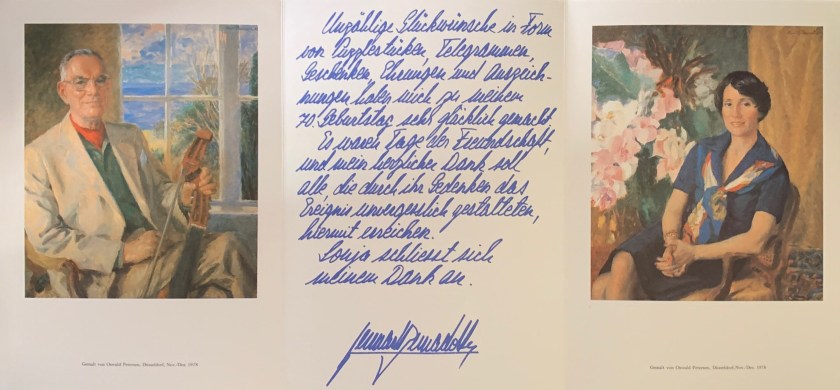 Unzählige Glückwünsche in Form
von Puzzlestücken, Telegrammen,
Geschenken, Ehrungen und Auszeich-
nungen haben mich zu meinem
70. Geburtstag sehr glücklich gemacht.
Es waren Tage der Freundschaft,
und mein herzlicher Dank soll
alle die durch ihr Gedenken das
Ereignis unvergesslich gestalteten,
hiermit erreichen.
Sonja schliesst sich
meinem Dank an.
Gemalt von Oswald Petersen, Düsseldorf, Nov./Dez. 1978
Gemalt von Oswald Petersen, Düsseldorf, Nov./Dez. 1978